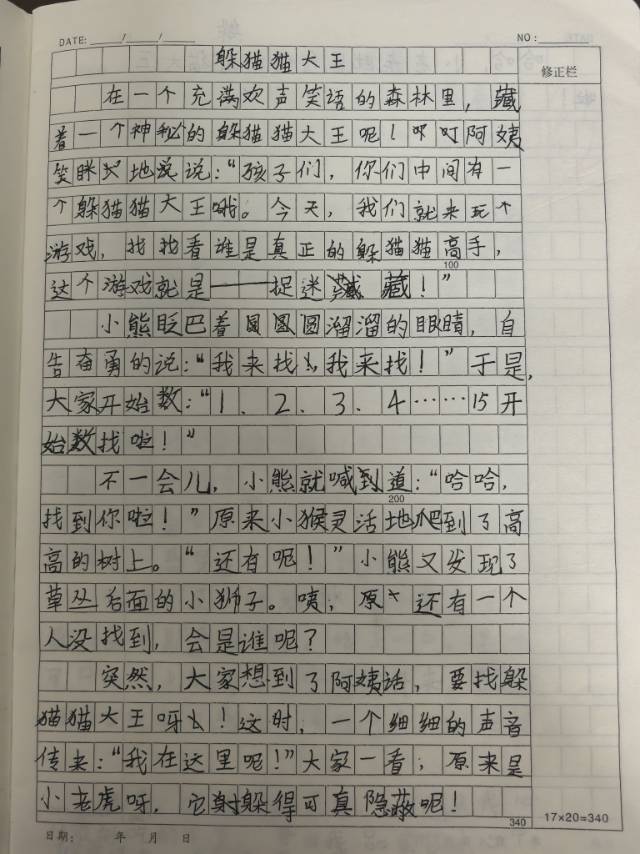 DATE: ___/___/___ NO: ______
躲猫猫大王
修正栏
在一个充满欢声笑语的森林里，藏
着一个神秘的躲猫猫大王呢！叮叮阿姨
笑眯眯地说："孩子们，你们中间有一
个躲猫猫大王哦。今天，我们就来玩个
游戏，找找看谁是真正的躲猫猫高手，
100
这个游戏就是——捉迷藏！"
小熊眨巴着圆圆溜溜的眼睛，自
告奋勇的说："我来找，我来找！"于是，
大家开始数："1.2.3.4……15开
始数找啦！"
不一会儿，小熊就喊到道："哈哈，
200
找到你啦！"原来小猴灵活地爬到了高
高的树上。"还有呢！"小熊又发现了
草丛后面的小狮子。咦，原来还有一个
人没找到，会是谁呢？
突然，大家想到了阿姨话，要找躲
猫猫大王呀！这时，一个细细的声音
传来："我在这里呢！"大家一看，原来是
小老虎呀，它躲得可真隐蔽呢！
340
17×20=340
日期： 年 月 日